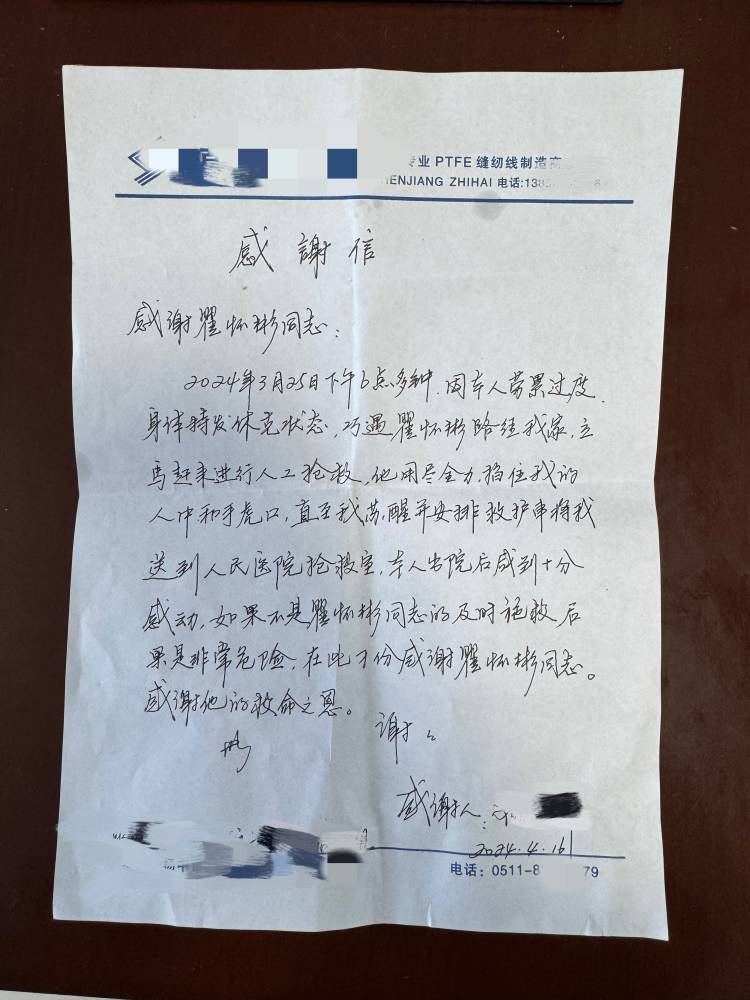 专业 PTFE 缝纫线制造商
ENJIANG ZHIHAI 电话:138
感謝信
感谢瞿怀彬同志：
2024年3月25日下午6点多种.因本人劳累过度.
身体特发休克状态，巧遇瞿怀彬路径我家，立
马赶来进行人工抢救，他用尽全力掐住我的
人中和手虎口，直至我苏醒并安排救护车将我
送到人民医院抢救室，本人出院后感到十分
感动，如果不是瞿怀彬同志的及时施救后
果是非常危险，在此十分感谢瞿怀彬同志。
感谢他的救命之恩。
谢
感谢人：
2024.4.16
电话：0511-8 79